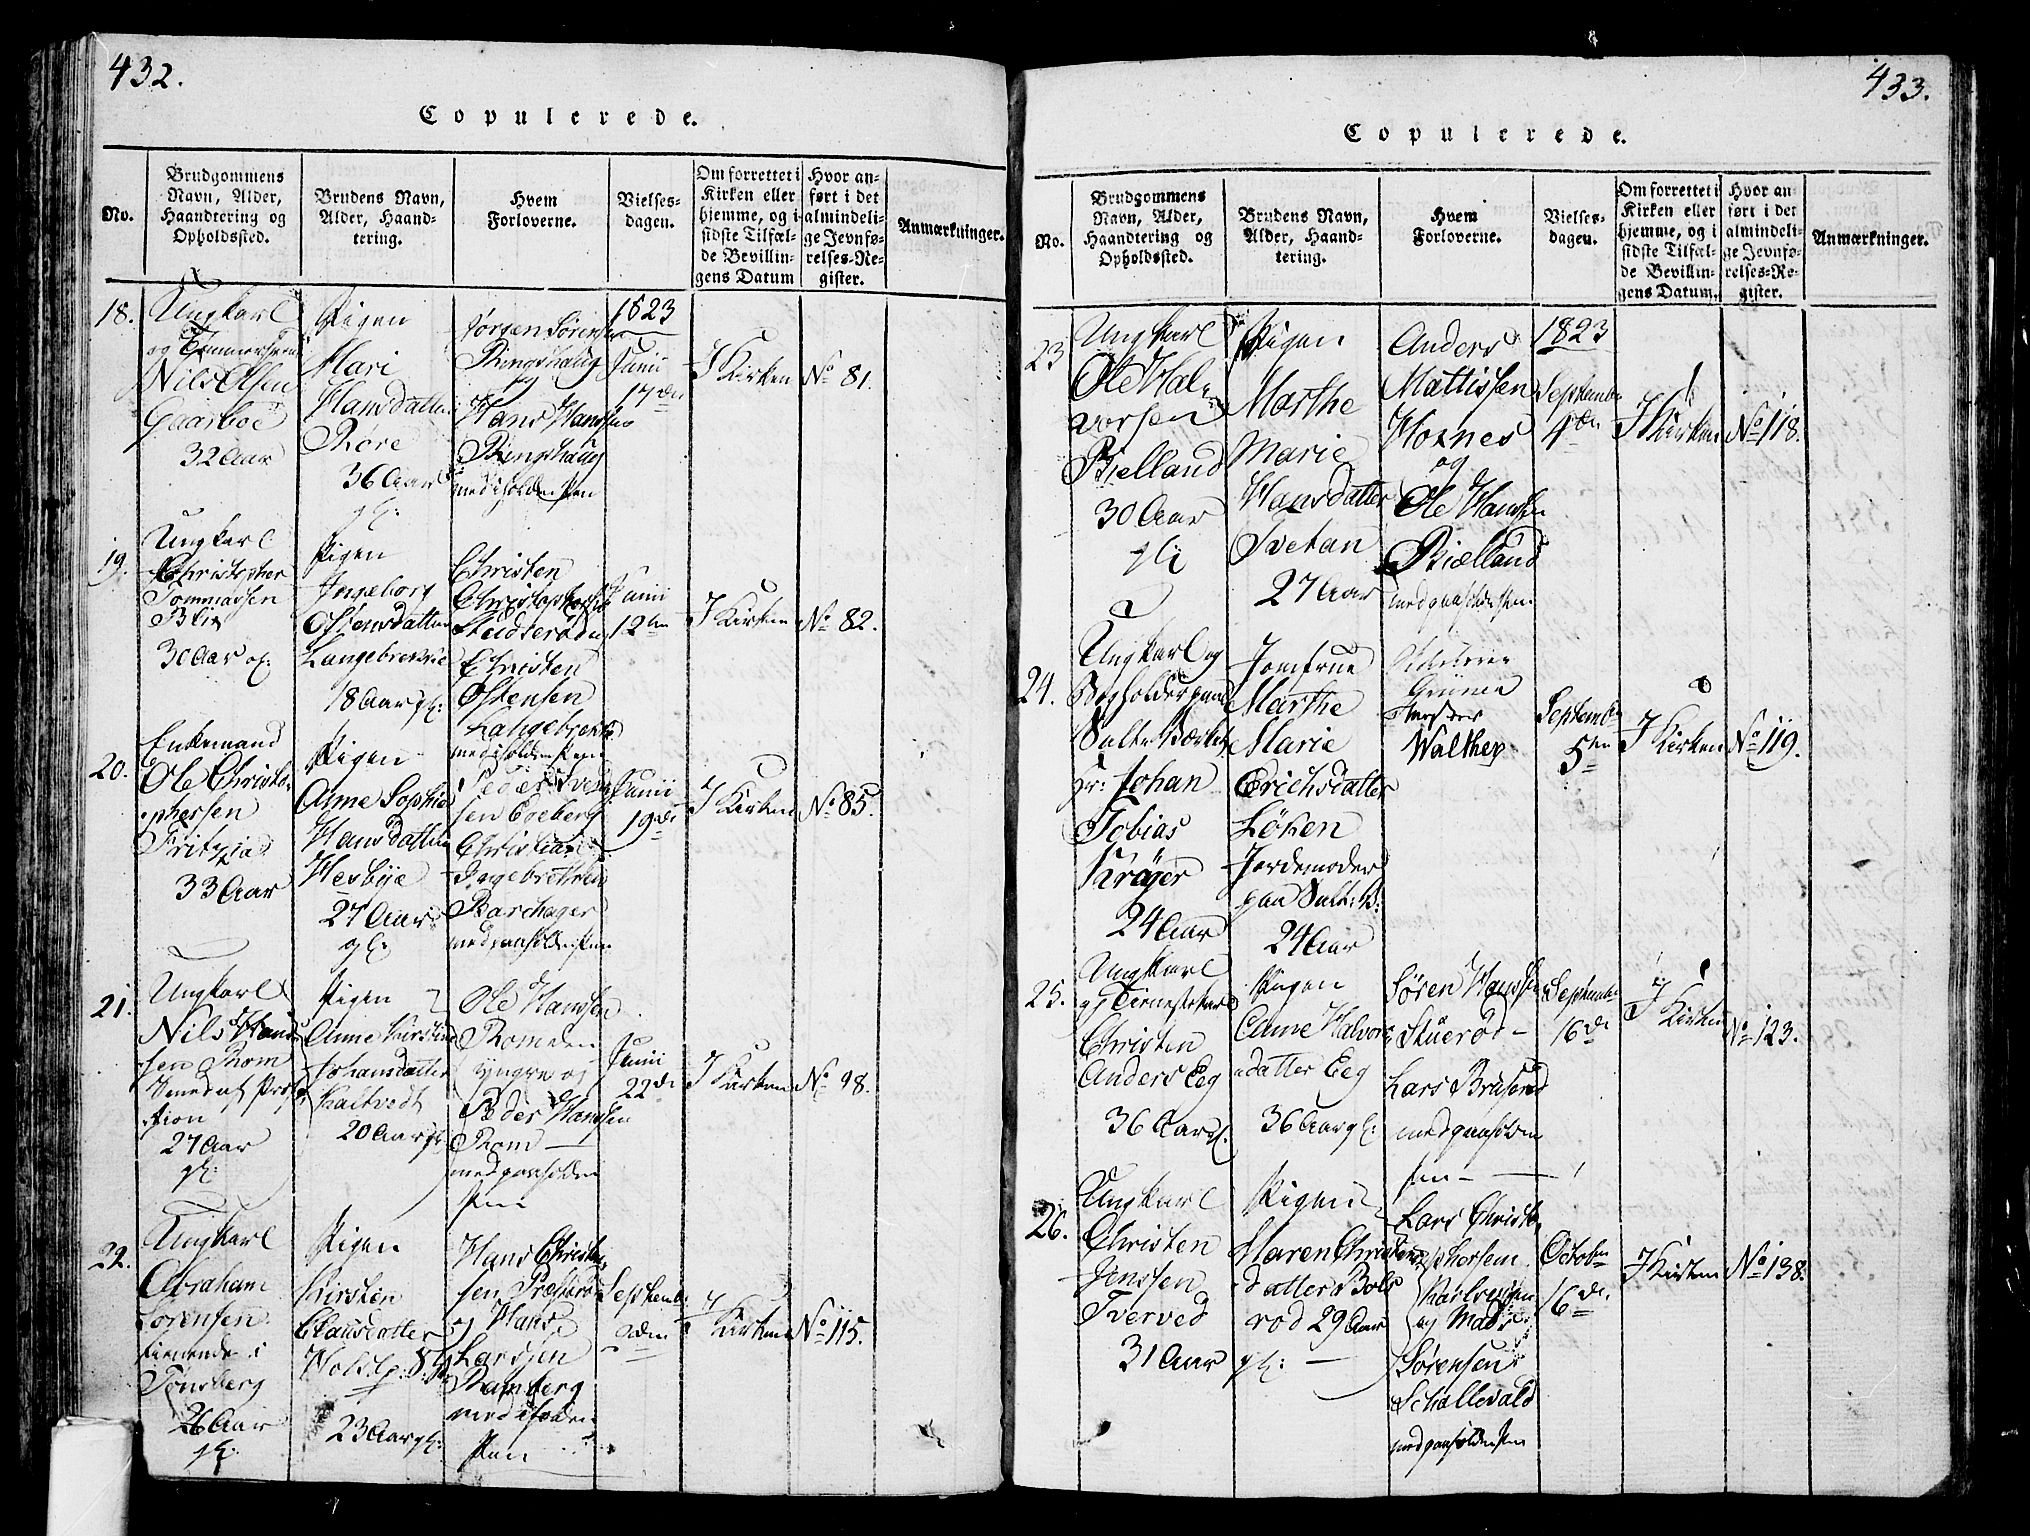 432.
Copulerede.
No.
Brudgommens
Navn, Alder,
Haandtering og
Opholdssted.
Brudens Navn,
Alder, Haand-
tering.
Hvem
Forloverne.
Vielses-
dagen.
Om forrettet i
Kirken eller
hjemme, og i
sidste Tilfæl-
de Bevillin-
gens Datum
Hvor an-
ført i det
almindeli-
ge Jevnfø-
relses-Re-
gister.
Anmærkninger.
18.
Ungkarl
og Tømmermand
Nils Olsen
Gaarboe
32 Aar
Pigen
Mari
Hansdatter
Røre
36 Aar
gl:
Jørgen Sørensen
Ringshaug
og
Hans Hansen
Ringshaug
1823
Junii
17de
I Kirken
No 81.
19.
Ungkarl
Christopher
Tommassen
Blix
30 Aar gl:
Pigen
Ingeborg
Ostensdatter
Langebrekke
18 Aar gl:
Christen
Christophersen
Christen
Ostensen
Langebrekke
Junii
12te
I Kirken
No 82.
20.
Enkemand
Ole Christo-
phersen
Fritzia
33 Aar
Pigen
Anne Sophia
Hansdatter
Hesbye
27 Aar
gl:
Peder
sen Edeberg
Christian
Ingebretsen
Barchager
Junii
19de
I Kirken
No 85.
21.
Ungkarl
Nils Han-
sen Rom
27 Aar
gl:
Pigen
Anne Kirstine
Johansdatter
Kaltvedt
20 Aar gl:
Ole Hansen
Rom den
yngre og
Peder Hansen
Rom
Junii
22de
I Kirken
No 98.
22.
Ungkarl
Abraham
Sørensen
tienende i
Tønsberg
26 Aar
gl:
Pigen
Kirsten
Clausdatter
23 Aar gl:
Hans Christen-
sen
og Hans
Larssen
Ramberg
September
I Kirken
No 115.
433.
Copulerede.
No.
Brudgommens
Navn, Alder,
Haandtering og
Opholdssted.
Brudens Navn,
Alder, Haand-
tering.
Hvem
Forloverne.
Vielses-
dagen.
Om forrettet i
Kirken eller
hjemme, og i
sidste Tilfæl-
de Bevillin-
gens Datum.
Hvor an-
ført i det
almindeli-
ge Jevnfø-
relses-Re-
gister.
Anmærkninger.
23
Ungkarl
Ole Hal-
vorsen
Bielland
30 Aar
gl:
Pigen
Marthe
Marie
Hansdatter
Svetan
27 Aar
Anders
Mattissen
Hoxnes
og
Ole Hansen
Biælland
1823
September
4de
I Kirken
No 118.
24.
Ungkarl og
Bogholder paa
Hr: Johan
Tobias
Krøyer
24 Aar
Jomfrue
Marthe
Marie
Erichsdatter
Løken
Jordemoder
paa Salt: V:
24 Aar
Grüner
Walther
September
5te
I Kirken
No 119.
25.
Ungkarl
Christen
Anders Eeg
36 Aar gl.
Pigen
Anne Halvors-
datter Eeg
36 Aar gl:
Søren Hanssen
Stuerød
Lars Bruserød
September
16de
I Kirken
No 123.
26.
Ungkarl
Christen
Jenssen
Tverved
31 Aar
Pigen
Maren Christens
datter Bols
rod 29 Aar
gl:
Lars Christo-
phersen
og Mads
Sørensen
Schallevald
October
16de
I Kirken
No 138.